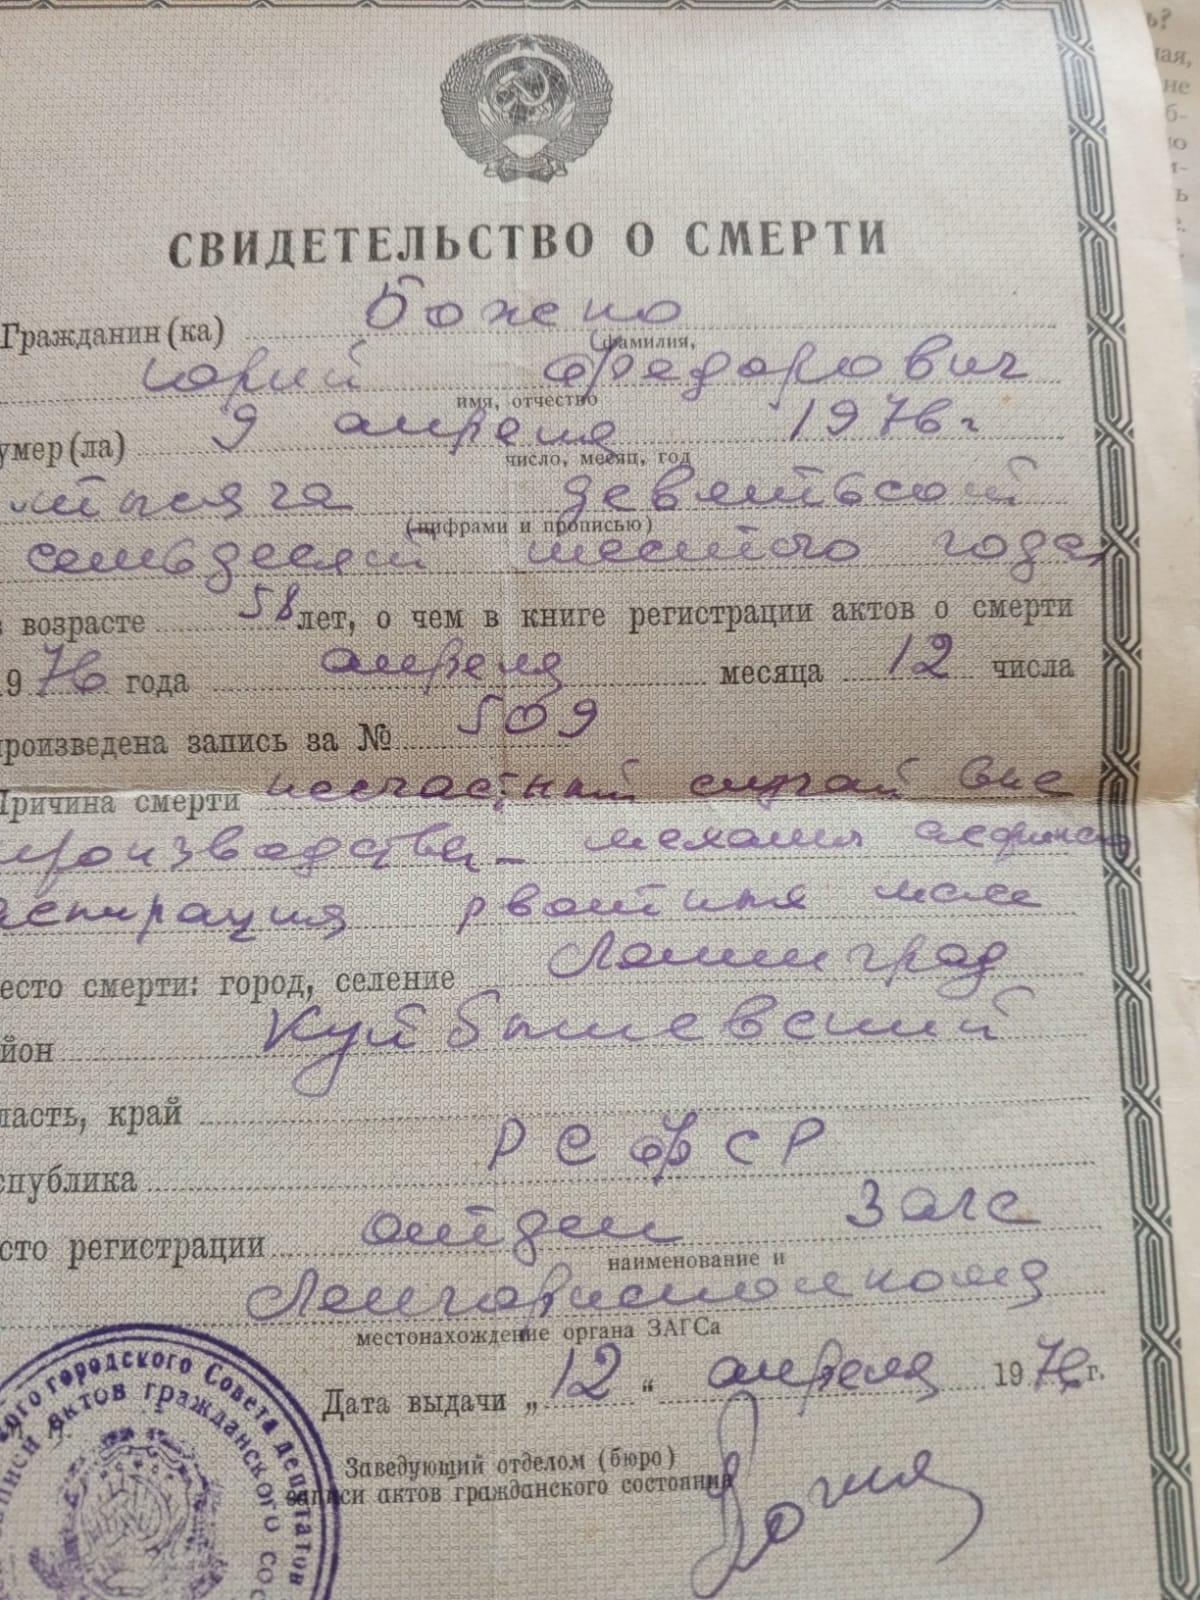 СВИДЕТЕЛЬСТВО О СМЕРТИ
Гражданин (ка) Божено
фамилия,
Юрий Федорович
имя, отчество
умер(ла) 9 апреля 1976 г
число, месяц, год
тысяча девятьсот
(цифрами и прописью)
семьдесят шестого года
в возрасте 58 лет, о чем в книге регистрации актов о смерти
1976 года апреля месяца 12 числа
произведена запись за № 509
Причина смерти несчастный случай вне
производства – механич асфикс
аспирация рвотных масс
есто смерти: город, селение Ленинград
йон Куйбышевский
ласть, край
спублика РСФСР
сто регистрации отдел Загс
наименование и
Ленгорисполкома
местонахождение органа ЗАГСа
Дата выдачи „ 12 “ апреля 1976 г.
Заведующий отделом (бюро)
записи актов гражданского состояния
ого городского Совета депутатов
записи актов гражданского сос
ь?
ная,
не
б-
ю
и-
ь
е.